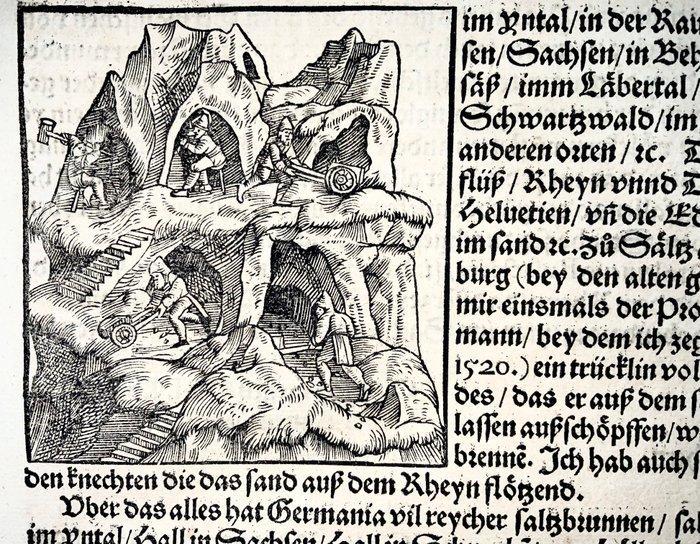 im Yntal/in der Rau
sen/Sachsen/in Beh
säß/imm Läbertal/
Schwartzwald/im
anderen orten/ꝛc.
flüß/Rheyn vnnd
Heluetien/vñ die
im sand ꝛc. Zů Sältz
burg (bey den alten g
mir einsmals der Pro
mann/bey dem ich zeg
1520.) ein trücklin vol
des/das er auß dem s
lassen außschöpffen/w
brennẽ. Ich hab auch s
den knechten die das sand auß dem Rheyn flötzend.
Vber das alles hat Germania vil reycher saltzbrunnen/sal
im Yntal/Hall in Sachsen/Hall in